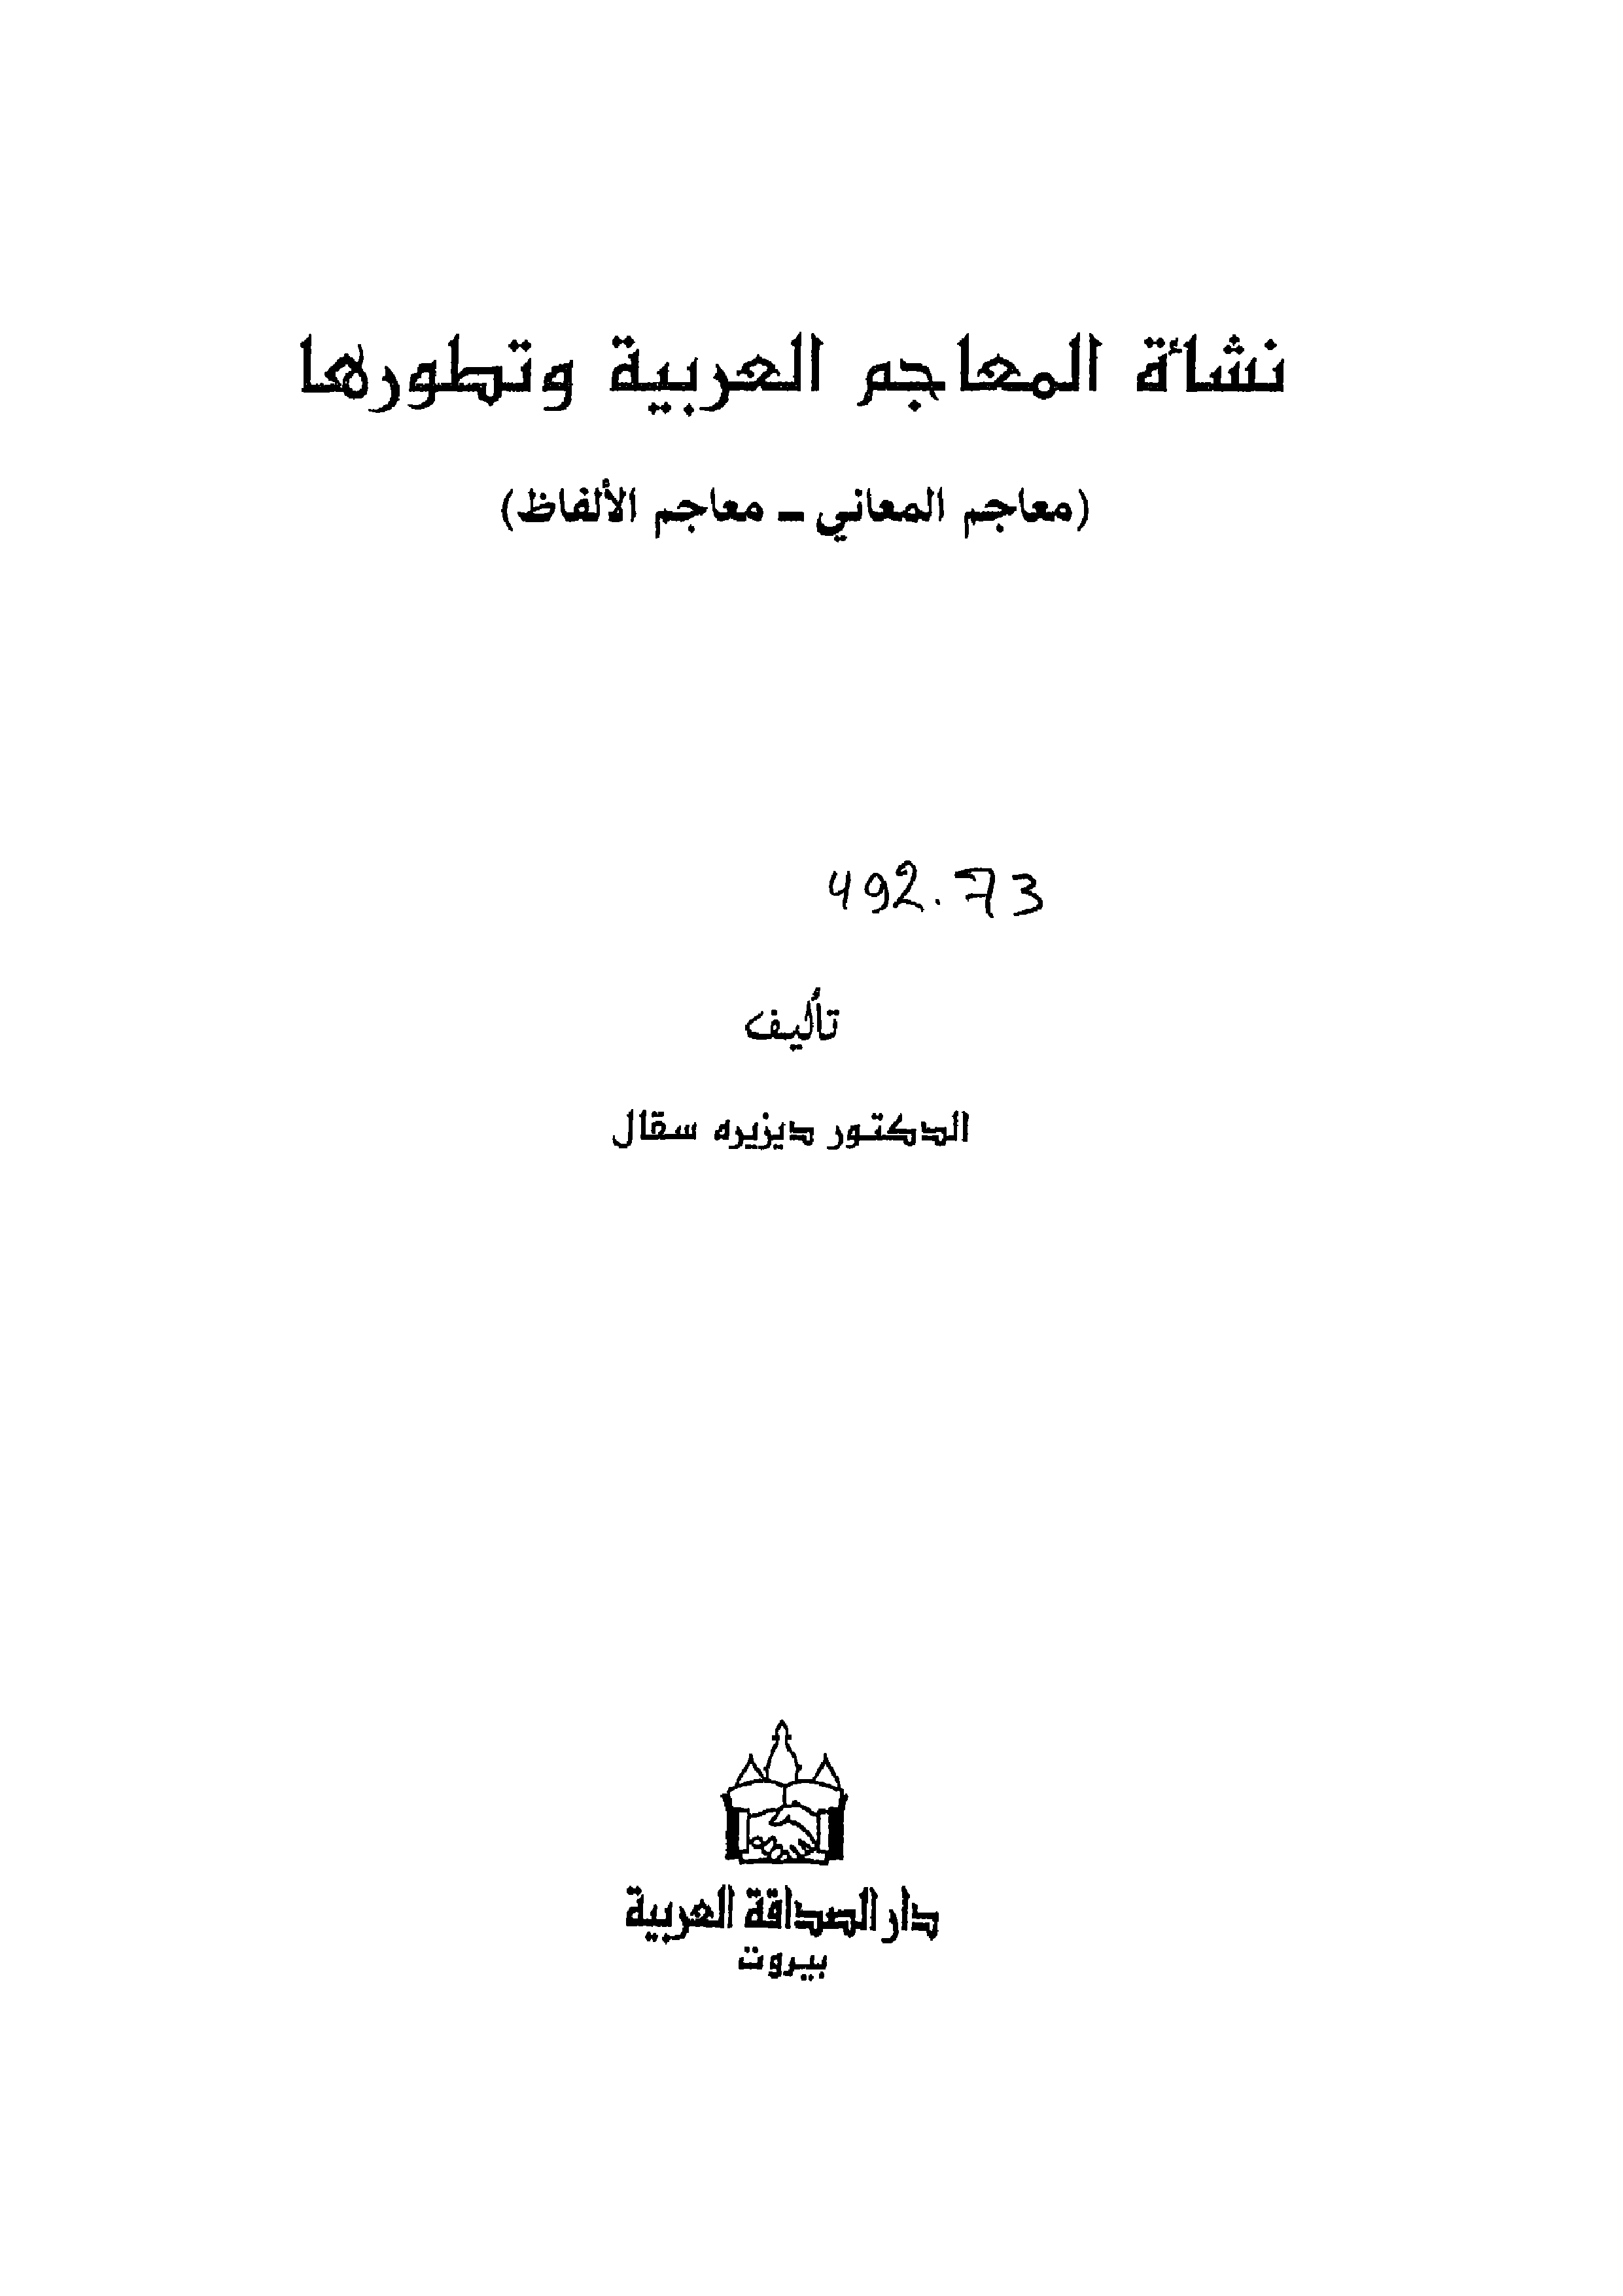 نشأة المعاجم العربية وتطورها
(معاجم المعاني ـ معاجم الألفاظ)
492.73
تأليف
الدكتور ديزيره سقال
دار الصداقة العربية
بيروت